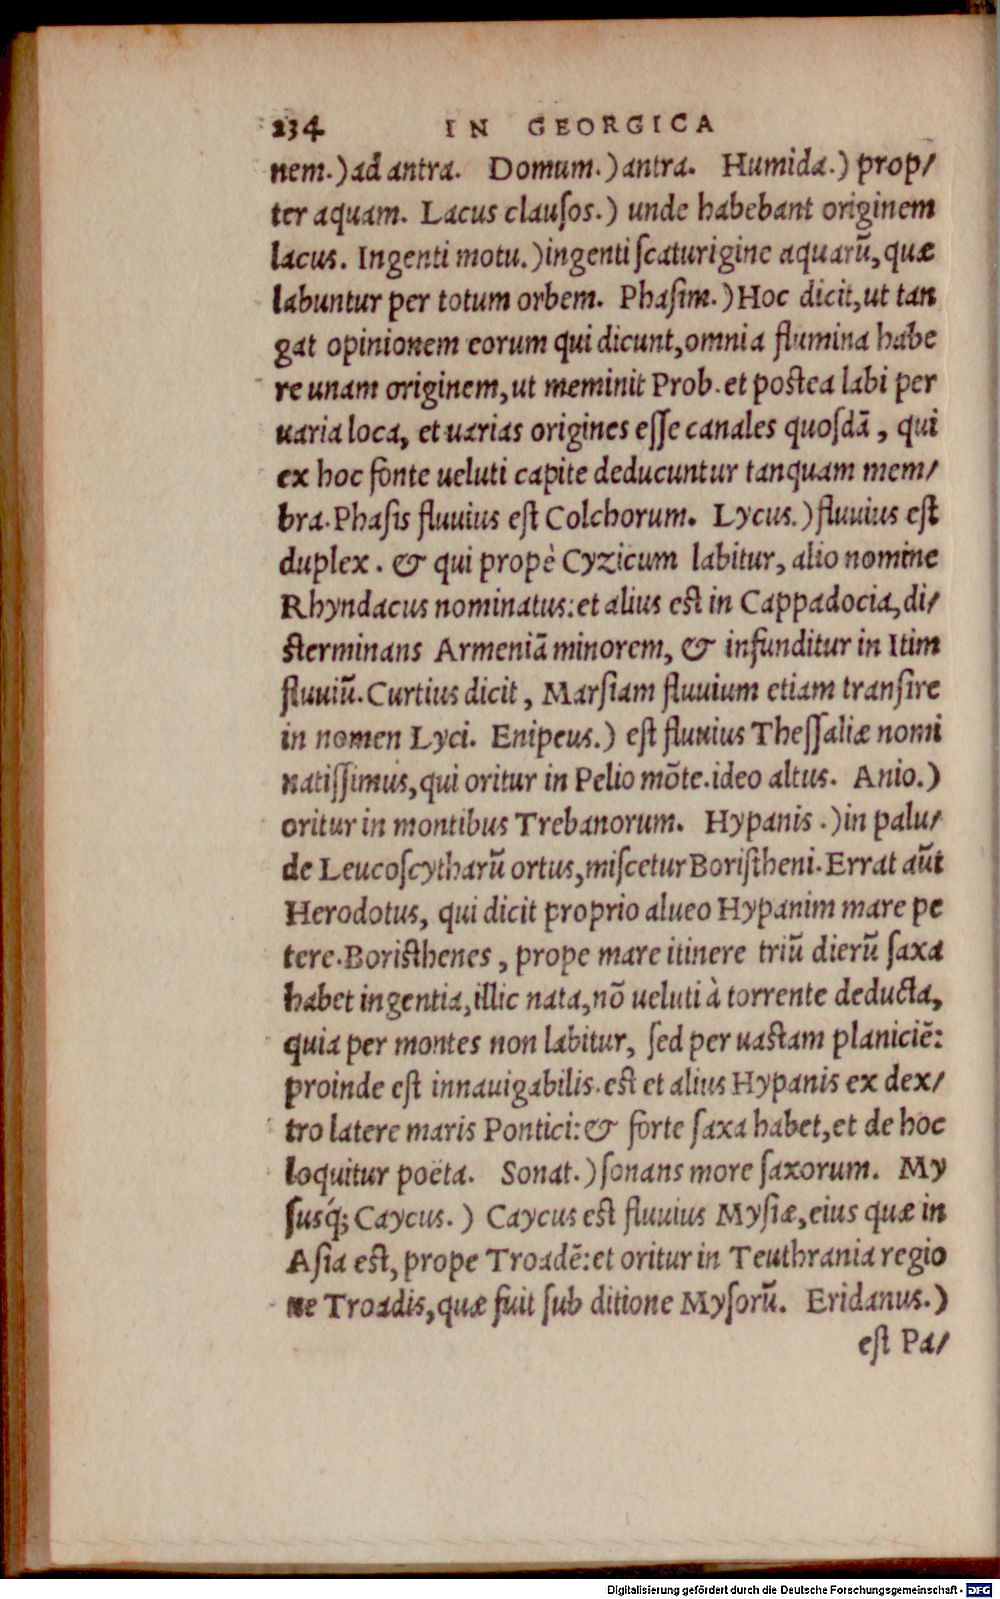 234 IN GEORGICA
nem.) ad antra. Domum.) antra. Humida.) prop/
ter aquam. Lacus clauſos.) unde habebant originem
lacus. Ingenti motu.) ingenti ſcaturigine aquarū, quæ
labuntur per totum orbem. Phaſim.) Hoc dicit, ut tan
gat opinionem eorum qui dicunt, omnia flumina habe
re unam originem, ut meminit Prob. et poſtea labi per
uaria loca, et uarias origines eſſe canales quoſdā, qui
ex hoc fonte ueluti capite deducuntur tanquam mem/
bra. Phaſis fluuius eſt Colchorum. Lycus.) fluuius eſt
duplex. & qui propè Cyzicum labitur, alio nomine
Rhyndacus nominatus: et alius eſt in Cappadocia, di/
ſterminans Armeniā minorem, & infunditur in Itim
fluuiū. Curtius dicit, Marſiam fluuium etiam tranſire
in nomen Lyci. Enipeus.) eſt fluuius Theſſaliæ nomi
natiſſimus, qui oritur in Pelio mōte. ideo altus. Anio.)
oritur in montibus Trebanorum. Hypanis.) in palu/
de Leucoſcytharū ortus, miſcetur Boriſtheni. Errat aūt
Herodotus, qui dicit proprio alueo Hypanim mare pe
tere. Boriſthenes, prope mare itinere triū dierū ſaxa
habet ingentia, illic nata, nō ueluti à torrente deducta,
quia per montes non labitur, ſed per uaſtam planiciē:
proinde eſt innauigabilis. eſt et alius Hypanis ex dex/
tro latere maris Pontici: & forte ſaxa habet, et de hoc
loquitur poëta. Sonat.) ſonans more ſaxorum. My
ſusq́; Caycus.) Caycus eſt fluuius Myſiæ, eius quæ in
Aſia eſt, prope Troadē: et oritur in Teuthrania regio
ne Troadis, quæ fuit ſub ditione Myſorū. Eridanus.)
eſt Pa/
Digitalisierung gefördert durch die Deutsche Forschungsgemeinschaft - DFG